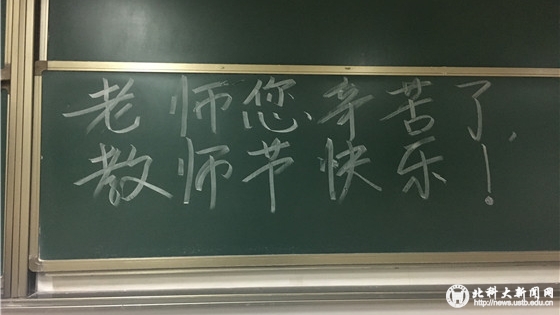 老师您辛苦了,
教师节快乐!
北科大新闻网
http://news.ustb.edu.cn